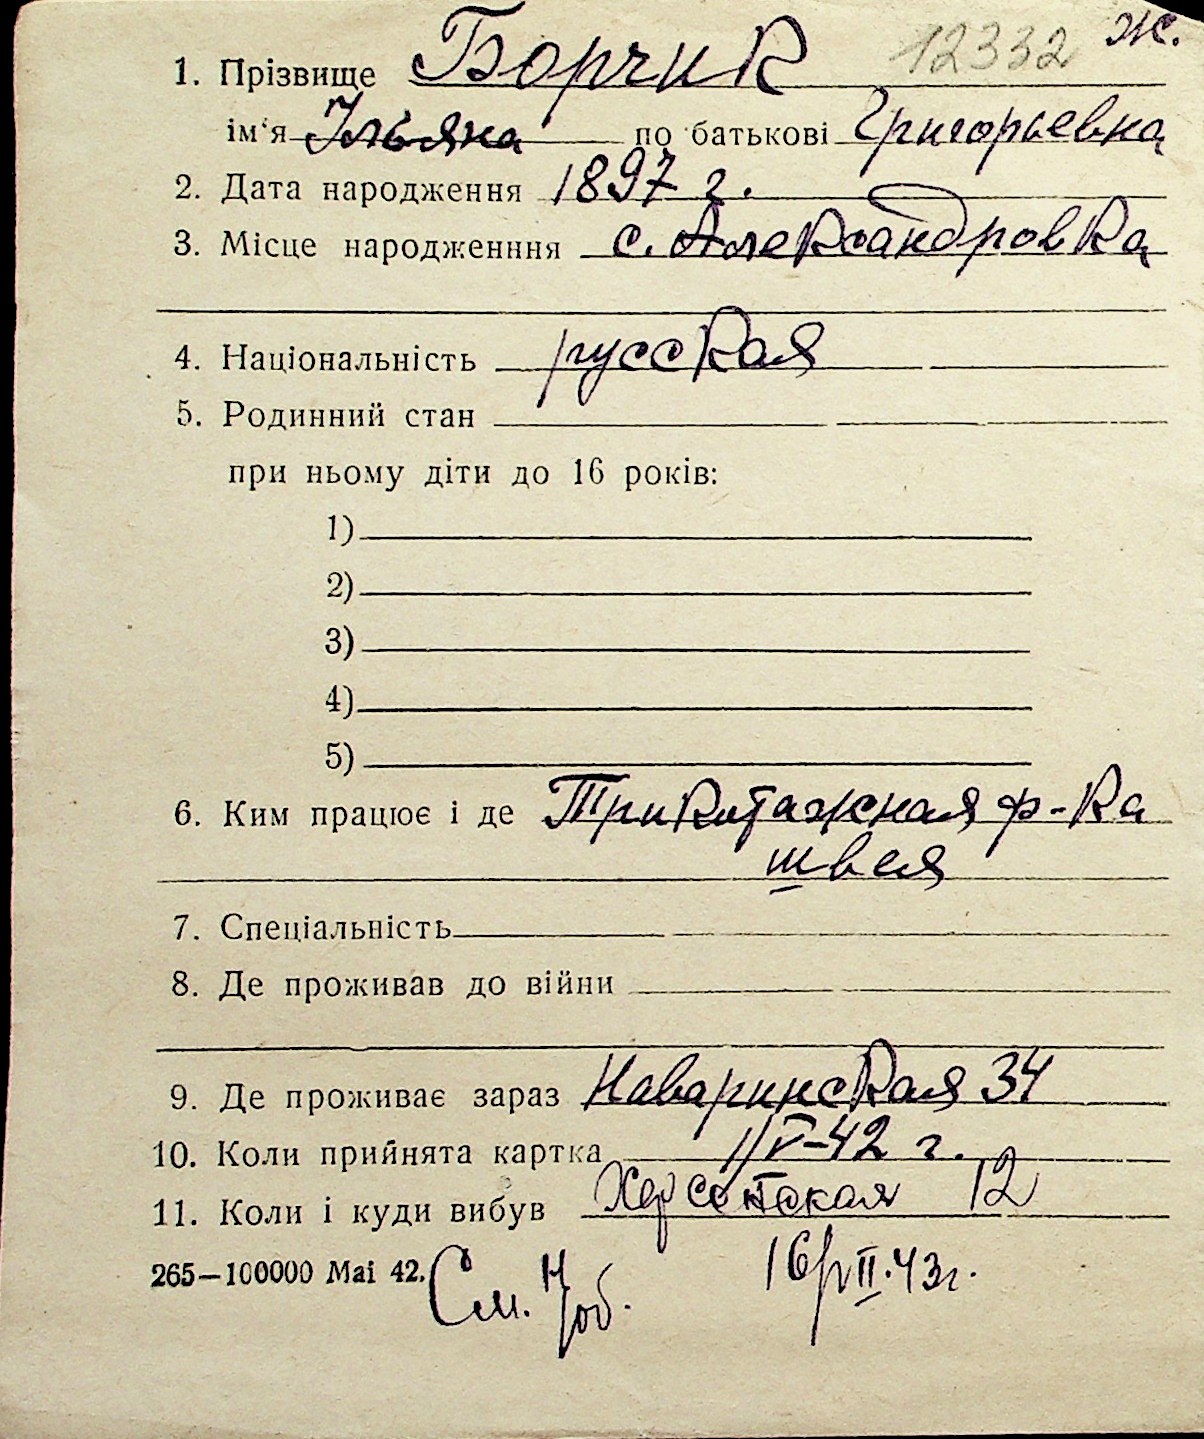 12332 ж.
1. Прізвище Борчик
ім'я Ульяна по батькові Григорьевна
2. Дата народження 1897 г.
3. Місце народженння с. Александровка
4. Національність русская
5. Родинний стан
при ньому діти до 16 років:
1)
2)
3)
4)
5)
6. Ким працює і де Трикотажная ф-ка
швея
7. Спеціальність
8. Де проживав до війни
9. Де проживає зараз Наваринская 34
10. Коли прийнята картка V-42 г.
11. Коли і куди вибув Херсонская 12
265—100000 Mai 42. См. 16/II.43г.